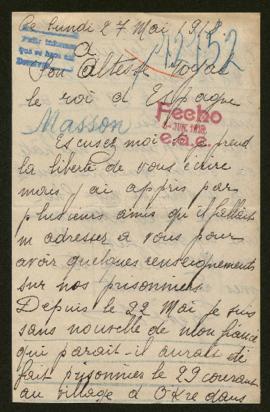 Ce Lundi 27 Mai 1918.
12152
A
Son Altesse Royal
le roi d Espagne
Fecho
JUN. 1918
e.a.c.
Masson
Escusez moi si je prend
la liberté de vous écrire
mais j ai appris par
plusieurs amis qu il fallait
m adresser a vous pour
avoir quelques renseignements
sur nos prisonniers
Depuis le 22 Mai je suis
sans nouvelle de mon fiancé
qui parait-il aurait été
fait prisonnier le 29 courant
au village d dans